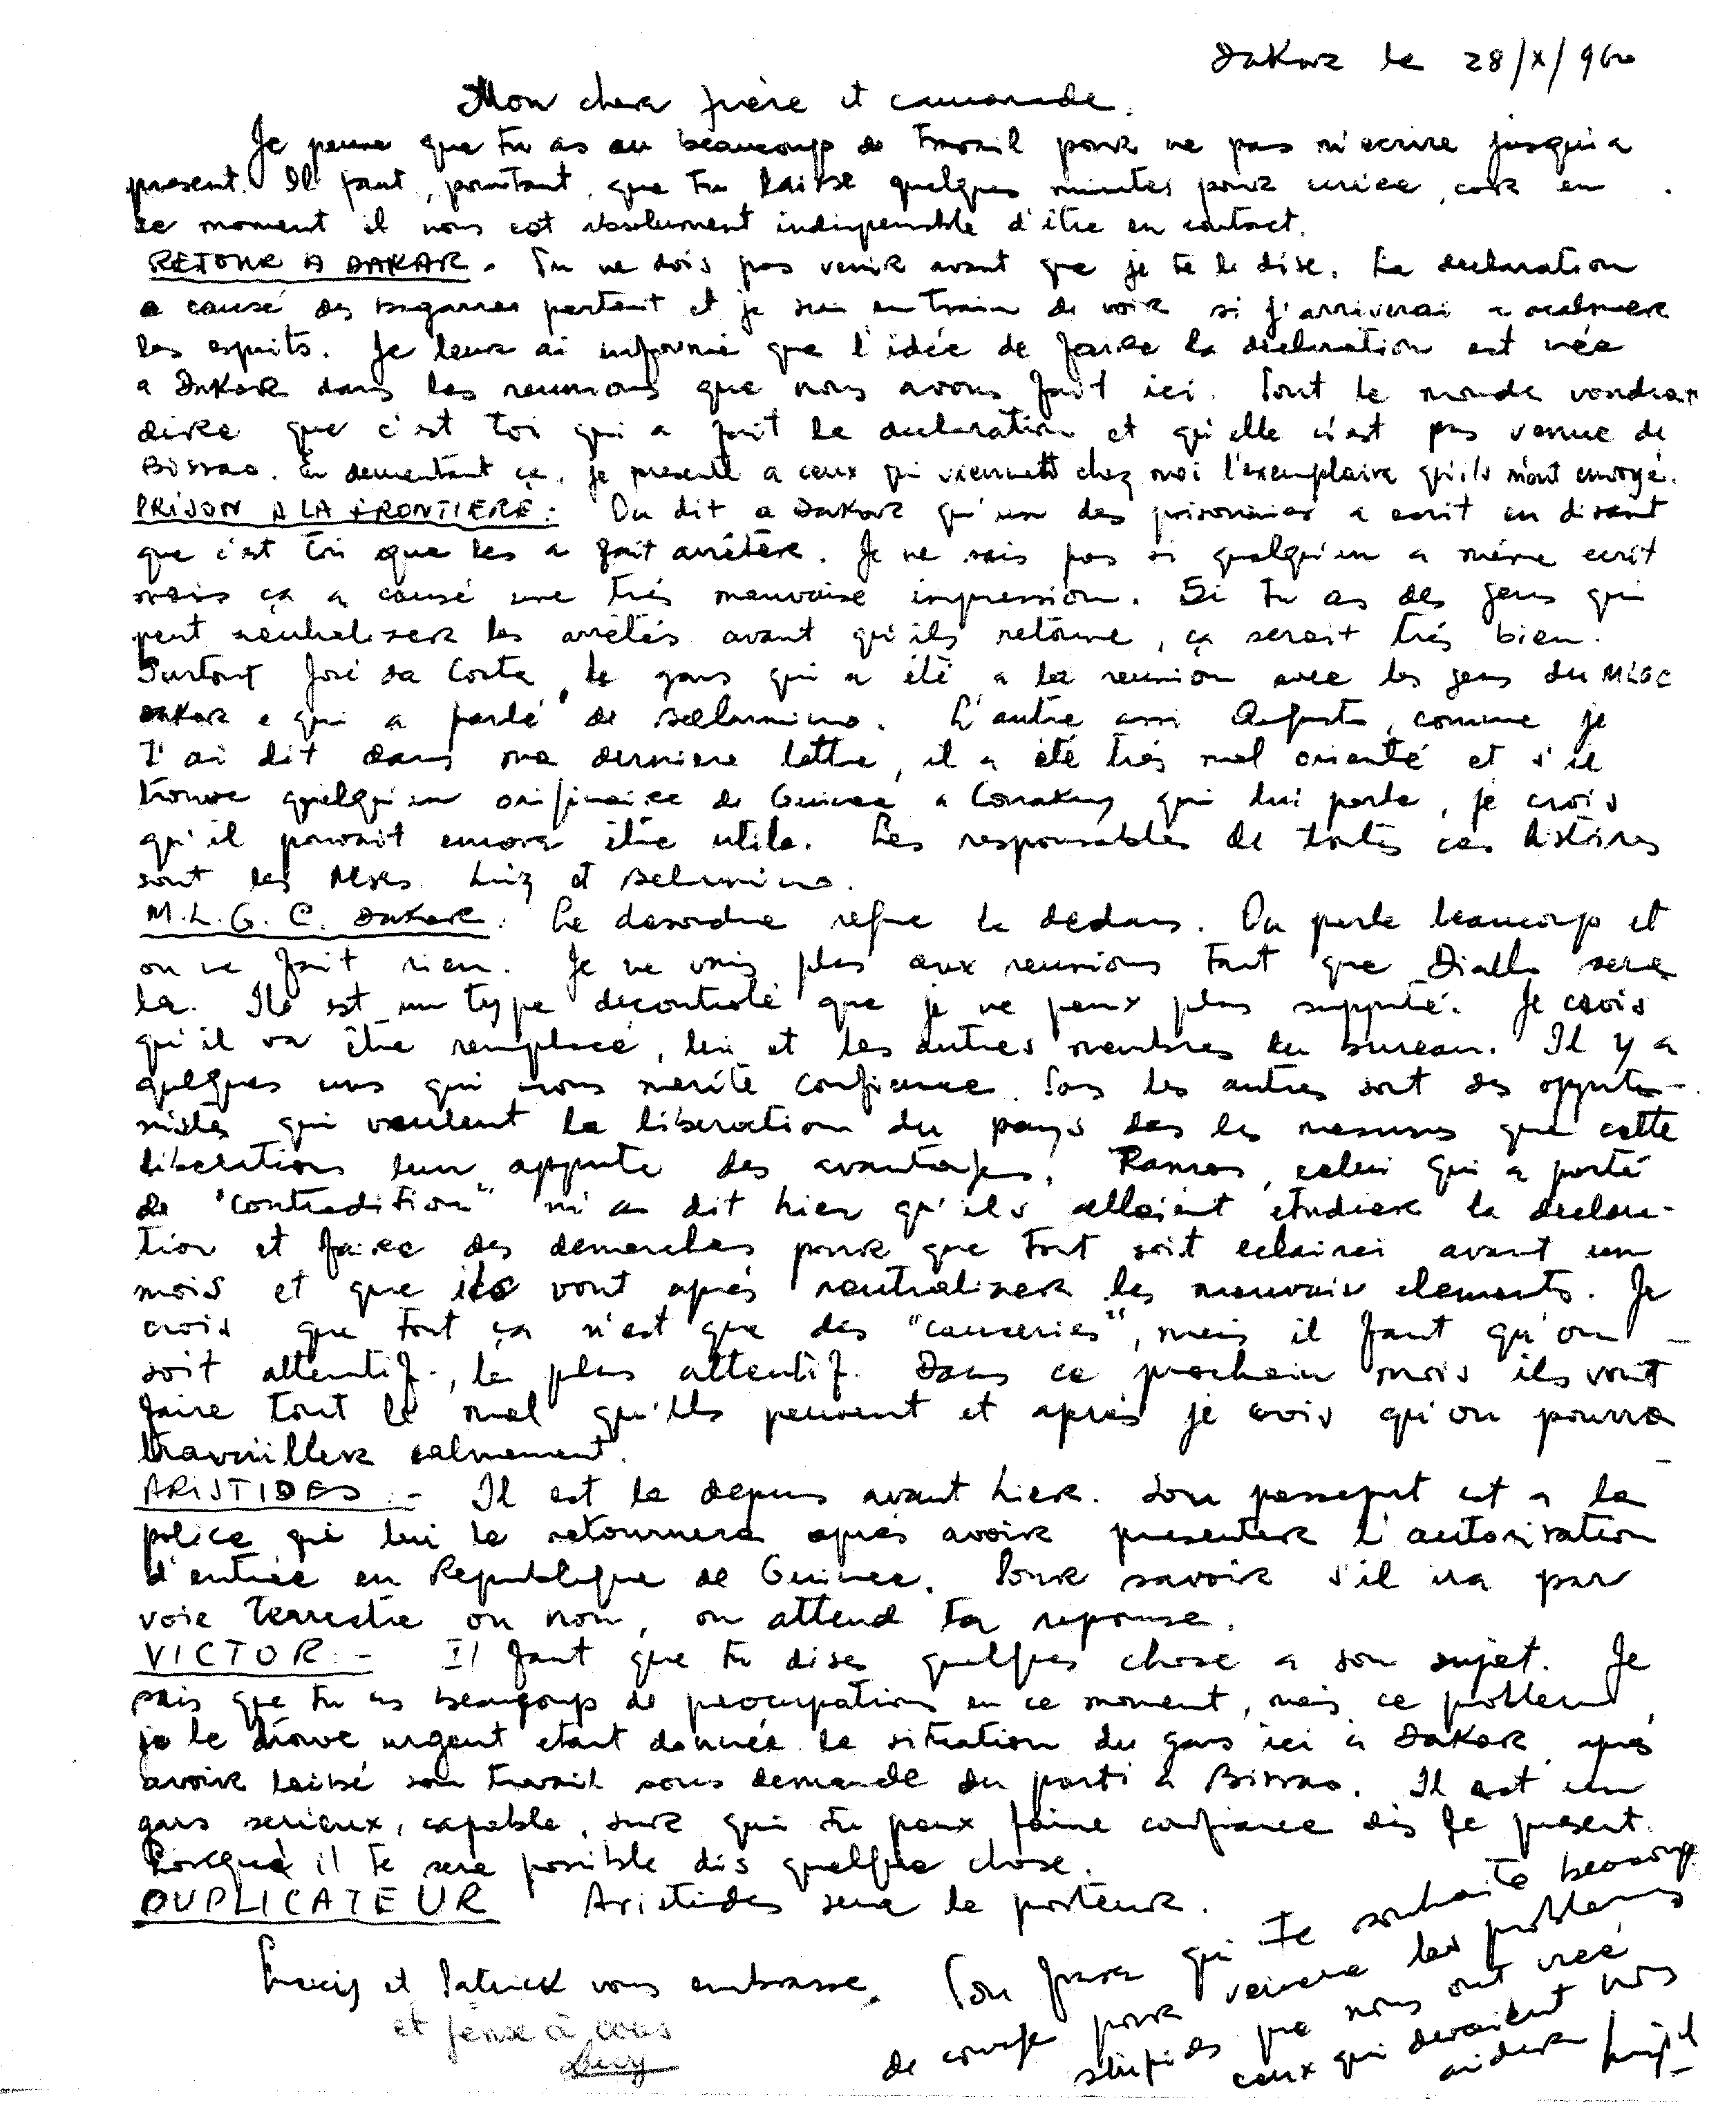 Dakar le 28/X/960
Mon cher frère et camarade.
Je pense que tu as eu beaucoup de travail pour ne pas m'ecrire jusqu'a
present. Il faut, pourtant, que tu laisse quelques minutes pour ecrire, car en
ce moment il nous est absolument indispensable d'être en contact.
RETOUR A DAKAR. Tu ne dois pas venir avant que je te le dise. La declaration
a causé des bagarres partout et je suis en train de voir si j'arriverai a calmer
les esprits. Je leur ai informé que l'idée de faire la declaration est née
a Dakar dans les reunions que nous avons fait ici. Tout le monde voudrait
dire que c'est toi qui a fait la declaration et qu'elle n'est pas venue de
Bissao. En dementant ça, je presente a ceux qui viennent chez moi l'exemplaire qu'ils m'ont envoyé.
PRISON A LA FRONTIERE: On dit a Dakar qu'un des prisonnier a ecrit en disant
que c'est toi que les a fait arrêter. Je ne sais pas si quelqu'un a même ecrit
mais ça a causé une très mauvaise impression. Si tu as des gens qui
peut neutraliser les arrêtés avant qu'ils retourne, ça serait très bien.
Surtout José da Costa, le gars qui a été a la reunion avec les gens du MLGC
Dakar e qui a parlé de Belarmino. L'autre ami Augusto, comme je
t'ai dit dans ma derniere lettre, il a été très mal orienté et s'il
trouve quelqu'un originaire de Guinée a Conakry qui lui parle, je crois
qu'il pourrait encore être utile. Les responsables de toutes ces histoires
sont les Mrs. Luiz et Belarmino.
M.L.G.C. Dakar: Le desordre regne la dedans. On parle beaucoup et
on ne fait rien. Je ne vais plus aux reunions tant que Diallo sera
la. Il est un type decontrolé que je ne peux plus supporté. Je crois
qu'il va être remplacé, lui et les autres membres du bureau. Il y a
quelques uns qui nous merite confiance. Tous les autres sont des opportu-
nistes qui veulent la liberation du pays das les mesures que cette
liberations leur apporte des avantages. Ramos, celui qui a parlé
de "contradition" m'a dit hier qu'ils allaient etudier la declara-
tion et faire des demarches pour que tout soit eclairci avant un
mois et que ils vont après neutraliser les mauvais elements. Je
crois que tout ça n'est que des "causeries", mais il faut qu'on
soit attentif, le plus attentif. Dans ce prochain mois ils vont
faire tout le mal qu'ils peuvent et après je crois qu'on pourra
travailler calmement.
ARISTIDES.- Il est la depuis avant hier. Son passeport est a la
police qui lui le retournera après avoir presenter l'autorisation
d'entrée en Republique de Guinee. Pour savoir s'il ira par
voie terrestre ou non, on attend ta reponse.
VICTOR.- Il faut que tu dises quelques chose a son sujet. Je
sais que tu as beaucoup de preocupations en ce moment, mais ce problem
je le trouve urgent etant donnée la situation du gars ici a Dakar, après
avoir laissé son travail sous demande du parti a Bissao. Il est un
gars serieux, capable, sur qui tu peux faire confiance dès le present.
Lorsque il te sera possible dis quelque chose.
DUPLICATEUR Aristides sera le porteur.
et Patrick vous embrasse.
et pense à vous
Lucy
Ton frere qui te souhaite beaucoup
de courage pour vaincre les problems
stupides que nous ont creé
ceux qui devraient nous
aider